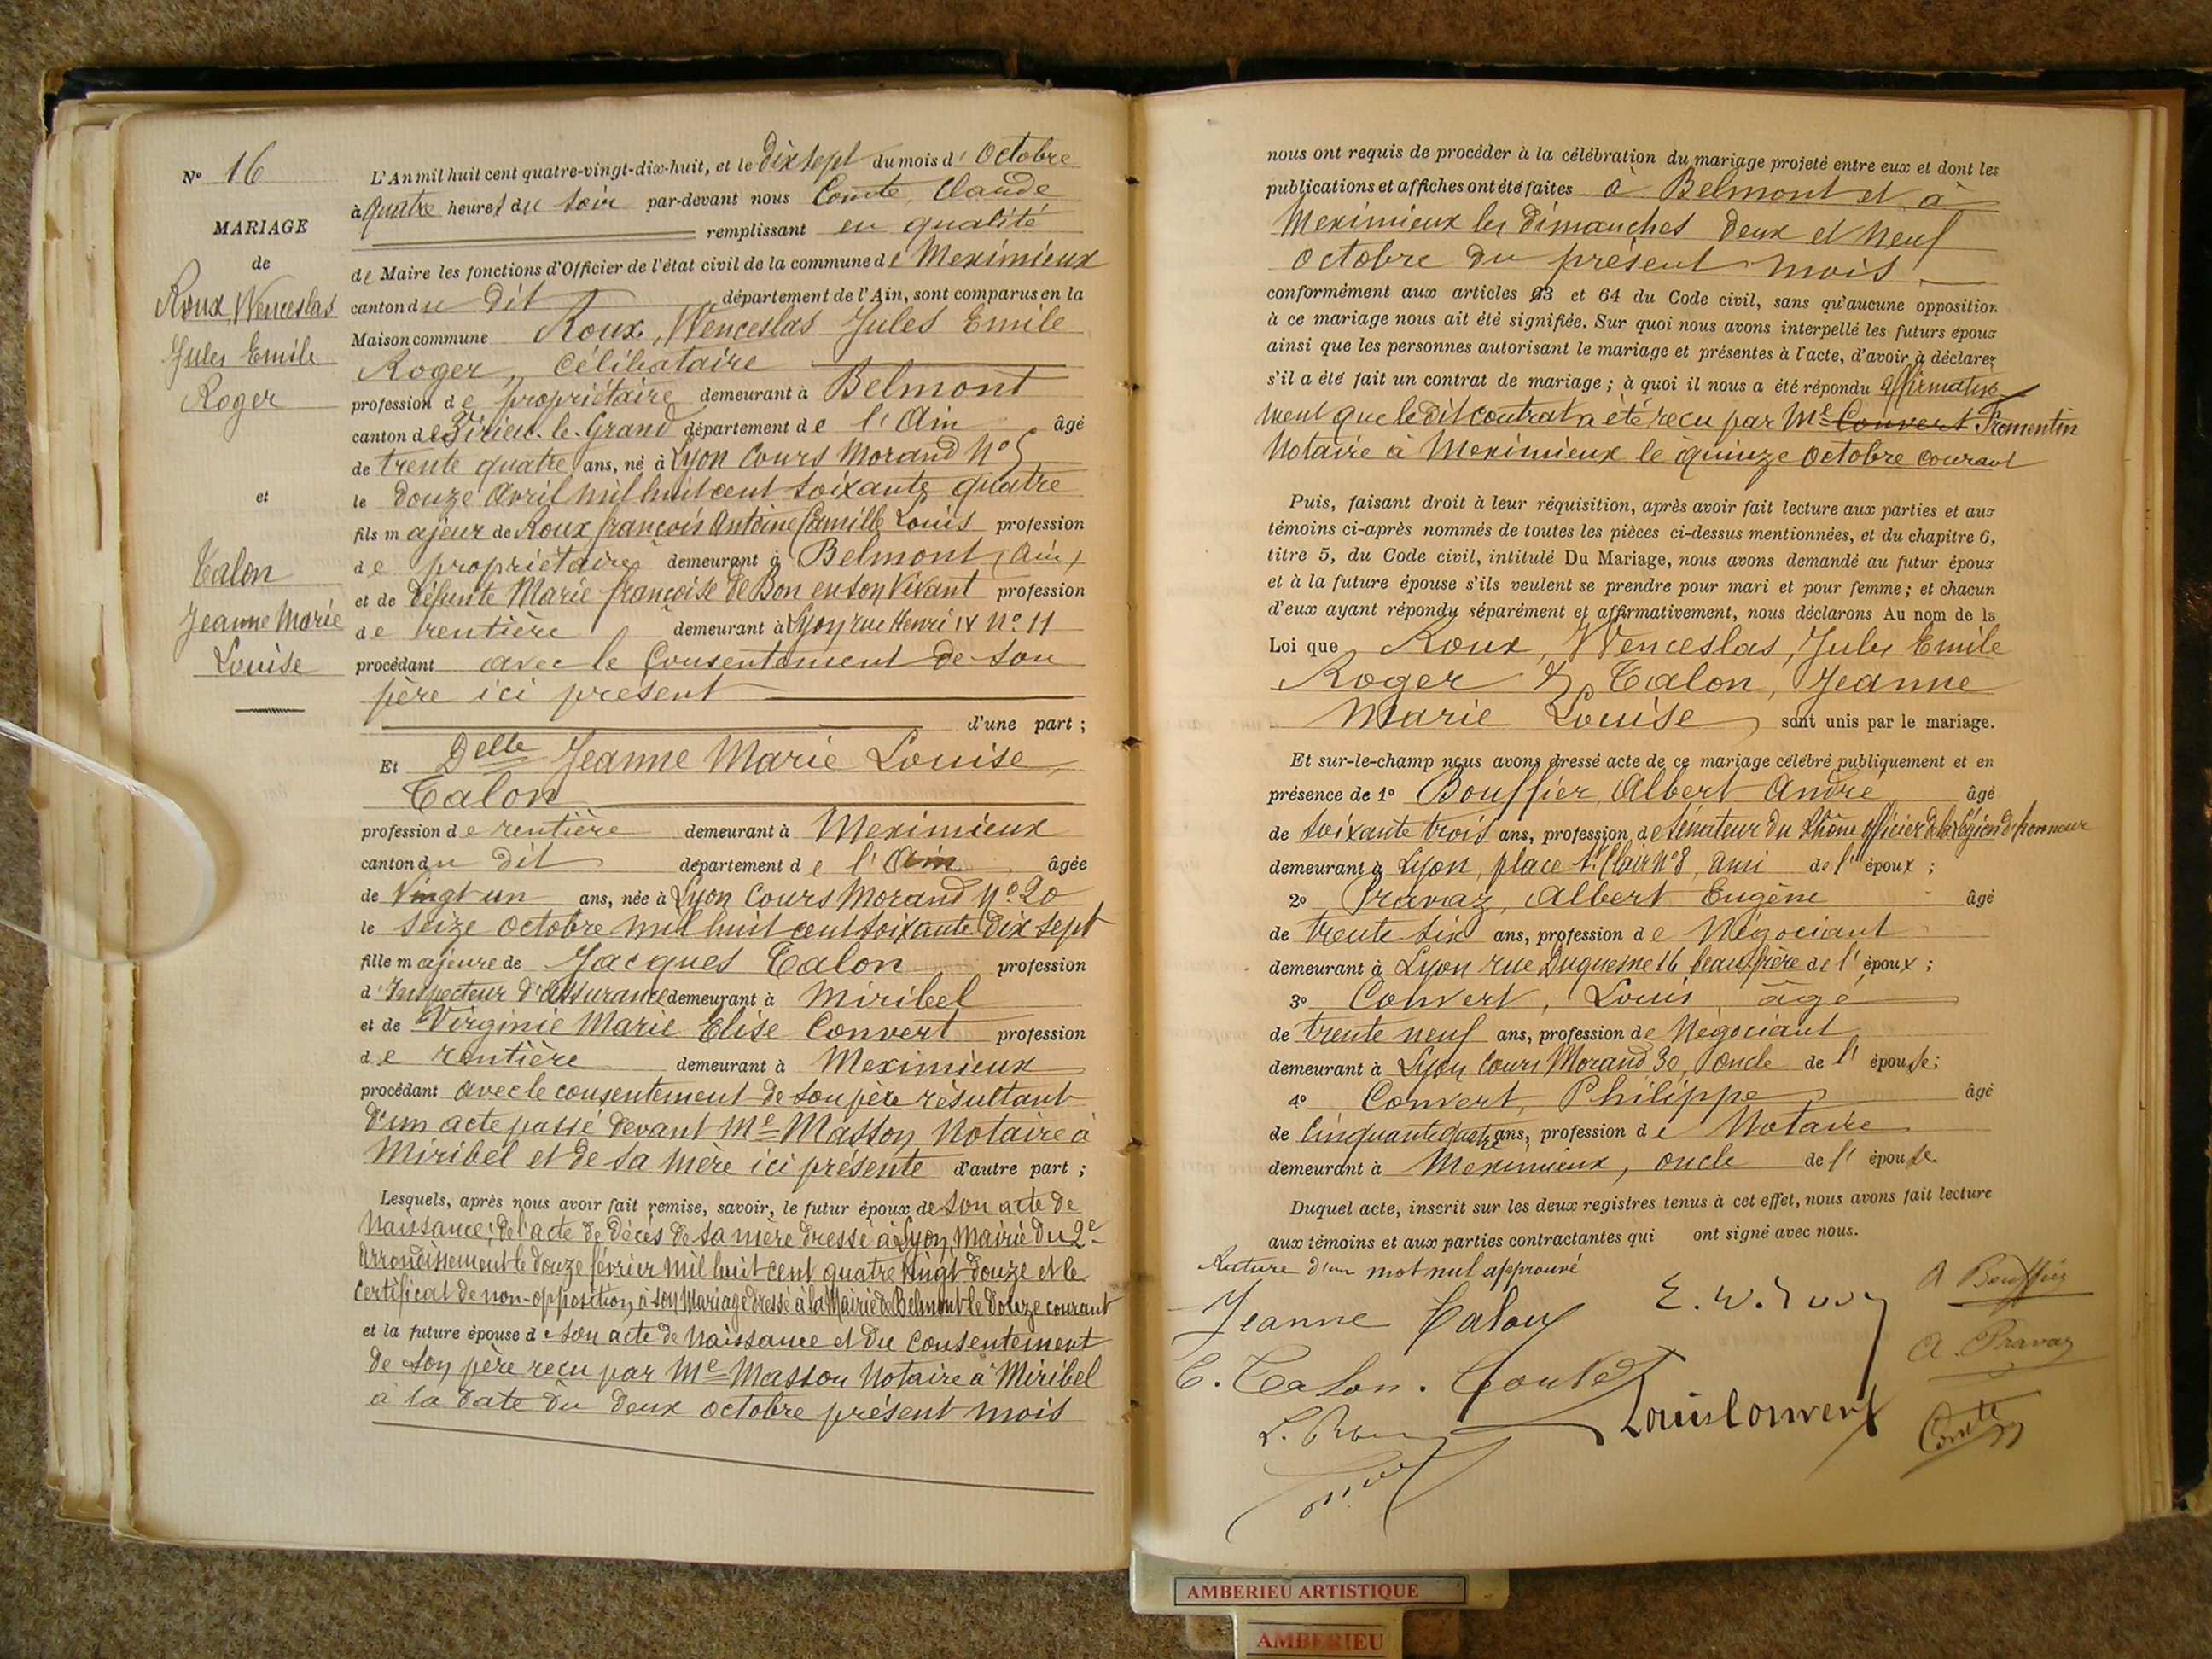 N° 16
MARIAGE
de
Roux, Wenceslas
Jules Emile
Roger
et
Talon
Jeanne Marie
Louise
L'An mil huit cent quatre-vingt-dix-huit, et le dix sept du mois d' Octobre
à quatre heures du soir par-devant nous Comte, Claude
remplissant en qualité
de Maire les fonctions d'Officier de l'état civil de la commune de Meximieux
canton du dit département de l'Ain, sont comparus en la
Maison commune Roux, Wenceslas Jules Emile
Roger, célibataire
profession de propriétaire demeurant à Belmont
canton de Virieu-le-Grand département de l'Ain âgé
de trente quatre ans, né à Lyon Cours Morand N° 5
le douze Avril mil huit cent soixante quatre
fils majeur de Roux françois Antoine Camille Louis profession
de propriétaire demeurant à Belmont (Ain)
et de défunte Marie françoise de Bon en son vivant profession
de rentière demeurant à Lyon rue Henri IV N° 11
procédant avec le consentement de son
père ici présent
d'une part ;
Et Delle Jeanne Marie Louise
Talon
profession de rentière demeurant à Meximieux
canton du dit département de l'Ain âgée
de Vingt un ans, née à Lyon Cours Morand N° 20
le seize Octobre mil huit cent soixante dix sept
fille majeure de Jacques Talon profession
d'Inspecteur d'Assurance demeurant à Miribel
et de Virginie Marie Elise Convert profession
de rentière demeurant à Meximieux
procédant avec le consentement de son père résultant
d'un acte passé devant Me Masson Notaire à
Miribel et de sa mère ici présente d'autre part ;
Lesquels, après nous avoir fait remise, savoir, le futur époux de son acte de
Naissance ; de l'acte de décès de sa mère dressé à Lyon, Mairie du 2e
Arrondissement le douze février mil huit cent quatre vingt douze et le
certificat de non-opposition à son Mariage dressé à la Mairie de Belmont le douze courant
et la future épouse de son acte de Naissance et du consentement
de son père reçu par Me Masson Notaire à Miribel
à la date du deux octobre présent mois
nous ont requis de procéder à la célébration du mariage projeté entre eux et dont les
publications et affiches ont été faites à Belmont et à
Meximieux les dimanches deux et neuf
Octobre du présent mois
conformément aux articles 63 et 64 du Code civil, sans qu'aucune opposition
à ce mariage nous ait été signifiée. Sur quoi nous avons interpellé les futurs époux
ainsi que les personnes autorisant le mariage et présentes à l'acte, d'avoir à déclarer
s'il a été fait un contrat de mariage ; à quoi il nous a été répondu affirmative
ment que le dit contrat a été reçu par Me Convert Fromentin
Notaire à Meximieux le quinze Octobre courant
Puis, faisant droit à leur réquisition, après avoir fait lecture aux parties et aux
témoins ci-après nommés de toutes les pièces ci-dessus mentionnées, et du chapitre 6,
titre 5, du Code civil, intitulé Du Mariage, nous avons demandé au futur époux
et à la future épouse s'ils veulent se prendre pour mari et pour femme ; et chacun
d'eux ayant répondu séparément et affirmativement, nous déclarons Au nom de la
Loi que Roux, Wenceslas, Jules Emile
Roger & Talon, Jeanne
Marie Louise sont unis par le mariage.
Et sur-le-champ nous avons dressé acte de ce mariage célébré publiquement et en
présence de 1° Bouffier, Albert André âgé
de soixante trois ans, profession de Sénateur du Rhône officier de la légion d'honneur
demeurant à Lyon, place St Clair N° 8, ami de l'époux ;
2° Pravaz, Albert Eugène âgé
de trente six ans, profession de Négociant
demeurant à Lyon rue Duquesne 16 beau frère de l'époux ;
3° Convert, Louis âgé
de trente neuf ans, profession de Négociant
demeurant à Lyon Cours Morand 30, oncle de l'épouse ;
4° Convert, Philippe âgé
de Cinquante quatre ans, profession de Notaire
demeurant à Meximieux, oncle de l'épouse
Duquel acte, inscrit sur les deux registres tenus à cet effet, nous avons fait lecture
aux témoins et aux parties contractantes qui ont signé avec nous.
Rature d'un mot nul approuvé
Jeanne Talon
A Bouffier
A. Pravaz
E. Talon. Convert
Louis Convert
Comte
AMBERIEU ARTISTIQUE
AMBERIEU